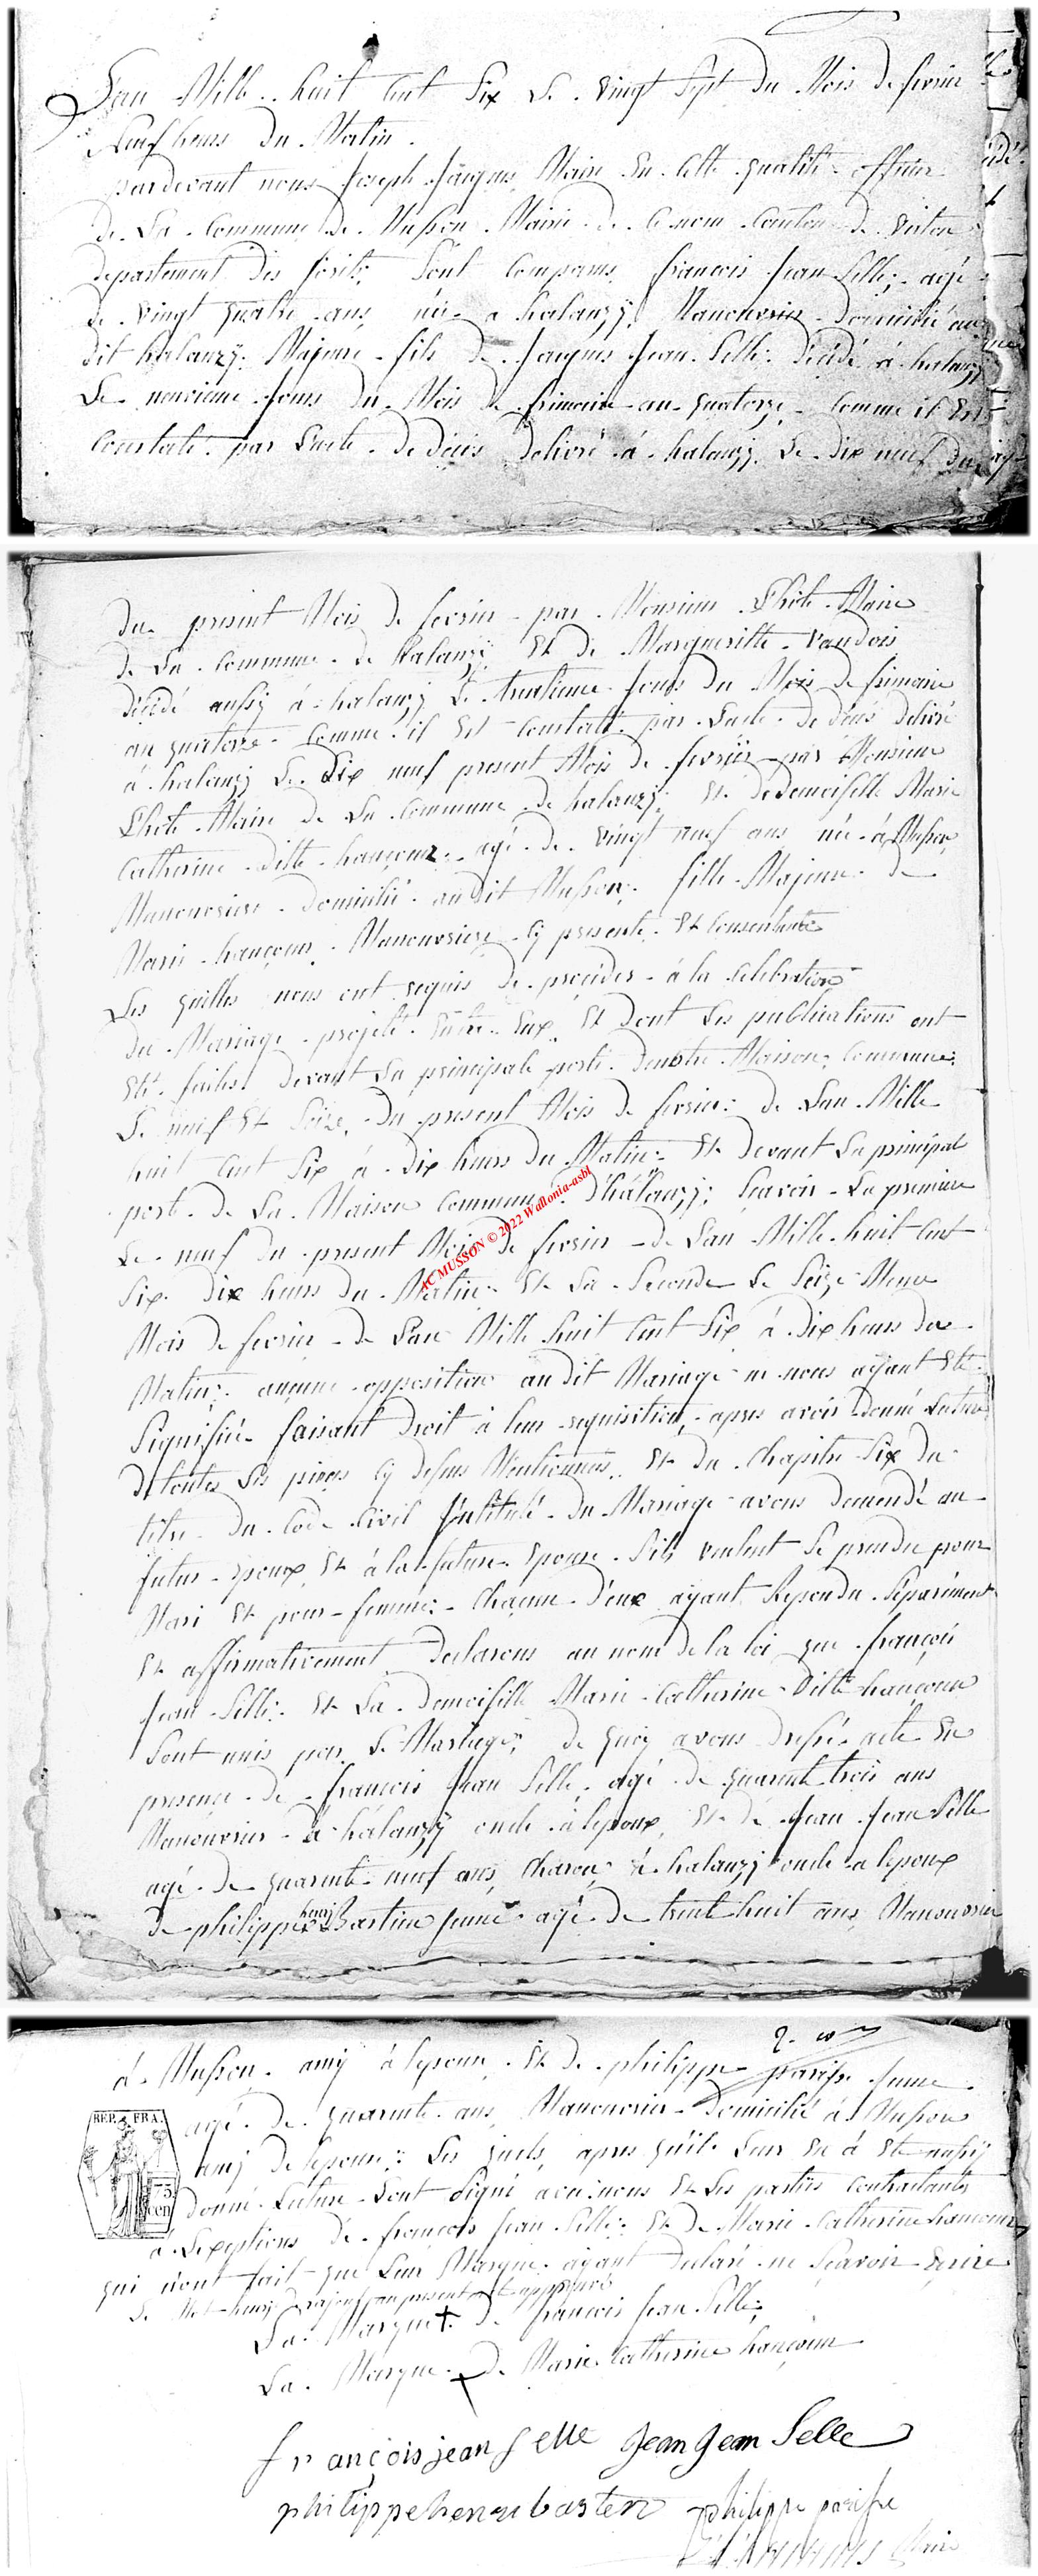 L'an Mille huit Cent Six Le vingt Sept du Mois de fevrier
Neuf heures du Matin.
pardevant nous Joseph Jacques Maire En Cette qualité officier
de La Commune de Musson Mairie de Ce nom Canton de Virton
departement des forêts; Sont Comparus francois Jean Selle; agé
de vingt quatre ans née a halanzÿ Manouvrier Domicilié au
dit halanzÿ Majeure fils de Jacques Jean Selle décédé à halanzÿ
Le neuvieme Jours du Mois de frimaire an quatorze Comme il Est
Constaté par Lacte de décès delivré à halanzy Le dix neuf du
du présent Mois de fevrier par Monsieur Maire
de La Commune de halanzÿ Et de Margueritte Vaudois
décédé aussy à halanzy Le trentieme Jours du Mois de frimaire
an quatorze Comme il Est Constaté par Lacte de décés delivré
à halanzy Le Dix neuf present Mois de fevrier par Monsieur
Maire de La Commune de halanzy; Et de demoiselle Marie
Catherine ditte hançoun agé de vingt neuf ans née à Musson
Manouvriere domicilié audit Musson; fille Majeure de
Marie hançoun Manouvriere Cy presente Et Consentante
Les quelles nous ont requis de procéder à la Celebration
du Mariage projeté Entre Eux Et dont Les publications ont
Eté faites devant La principale porte denotre Maison Commune
Le neuf Et Seize du present Mois de fevrier de Lan Mille
huit Cent Six à dix heures du Matin Et devant La principal
porte de La Maison Commune d'halanzy; Scavoir La premiere
Le neuf du present Mois de fevrier de Lan Mille huit Cent
Six dix heures du Matin Et La Seconde Le Seize Meme
Mois de fevrier de Lan Mille huit Cent Six à dix heures du
Matin; aucune opposition audit Mariage ne nous aÿant Eté
Signifiée faisant Droit à leur requisition, apres avoir donné Lecture
d toutes Les pieces Cy dessus Mentionnées Et du Chapitre Six du
titre du Code Civil Jntitulé du Mariage avons demendé au
futur Epoux Et à la future Epouse Sils veulent Se prendre pour
Mari Et pour femme; Chacun d'eux aÿant Repondu Séparément
Et affirmativement Declarons au nom de la loi que françois
Jean Selle; Et La Demoiselle Marie Catherine Ditte hançoun
Sont unis par Le Mariage; de quoy avons dressé acte En
presence de francois Jean Selle, agé de quarente trois ans
Manouvrier à halanzÿ oncle à lepoux Et de Jean Jean Selle
agé de quarente neuf ans Charon à halanzy oncle a lepoux
de philippe henrj Bastien agé de trente huit ans Manouvrier
à Musson amÿ à lepoux Et de philippe parisse
agé de quarente ans Manouvrier Domicilié à Musson
REP. FRA.
75
cen
amj de lepoux; Les quels, apres quil Leur En à Eté aussÿ
donné Lecture Sont Signé avec nous Et Les parties Contractantes
à Lexeptions de francois Jean Selle; Et de Marie Catherine hançoun
qui n'ont fait que Leur Marque aÿant Declaré ne Scavoir Ecrire
Le Mot henrj rajouté au present est approuvé
La Marque de francois Jean Selle;
La Marque De Marie Catherine hançoun
françois jean Selle Jean Jean Selle
philippe henri bastien philippe parisse
Maire
AC MUSSON © 2022 Wallonia-asbl